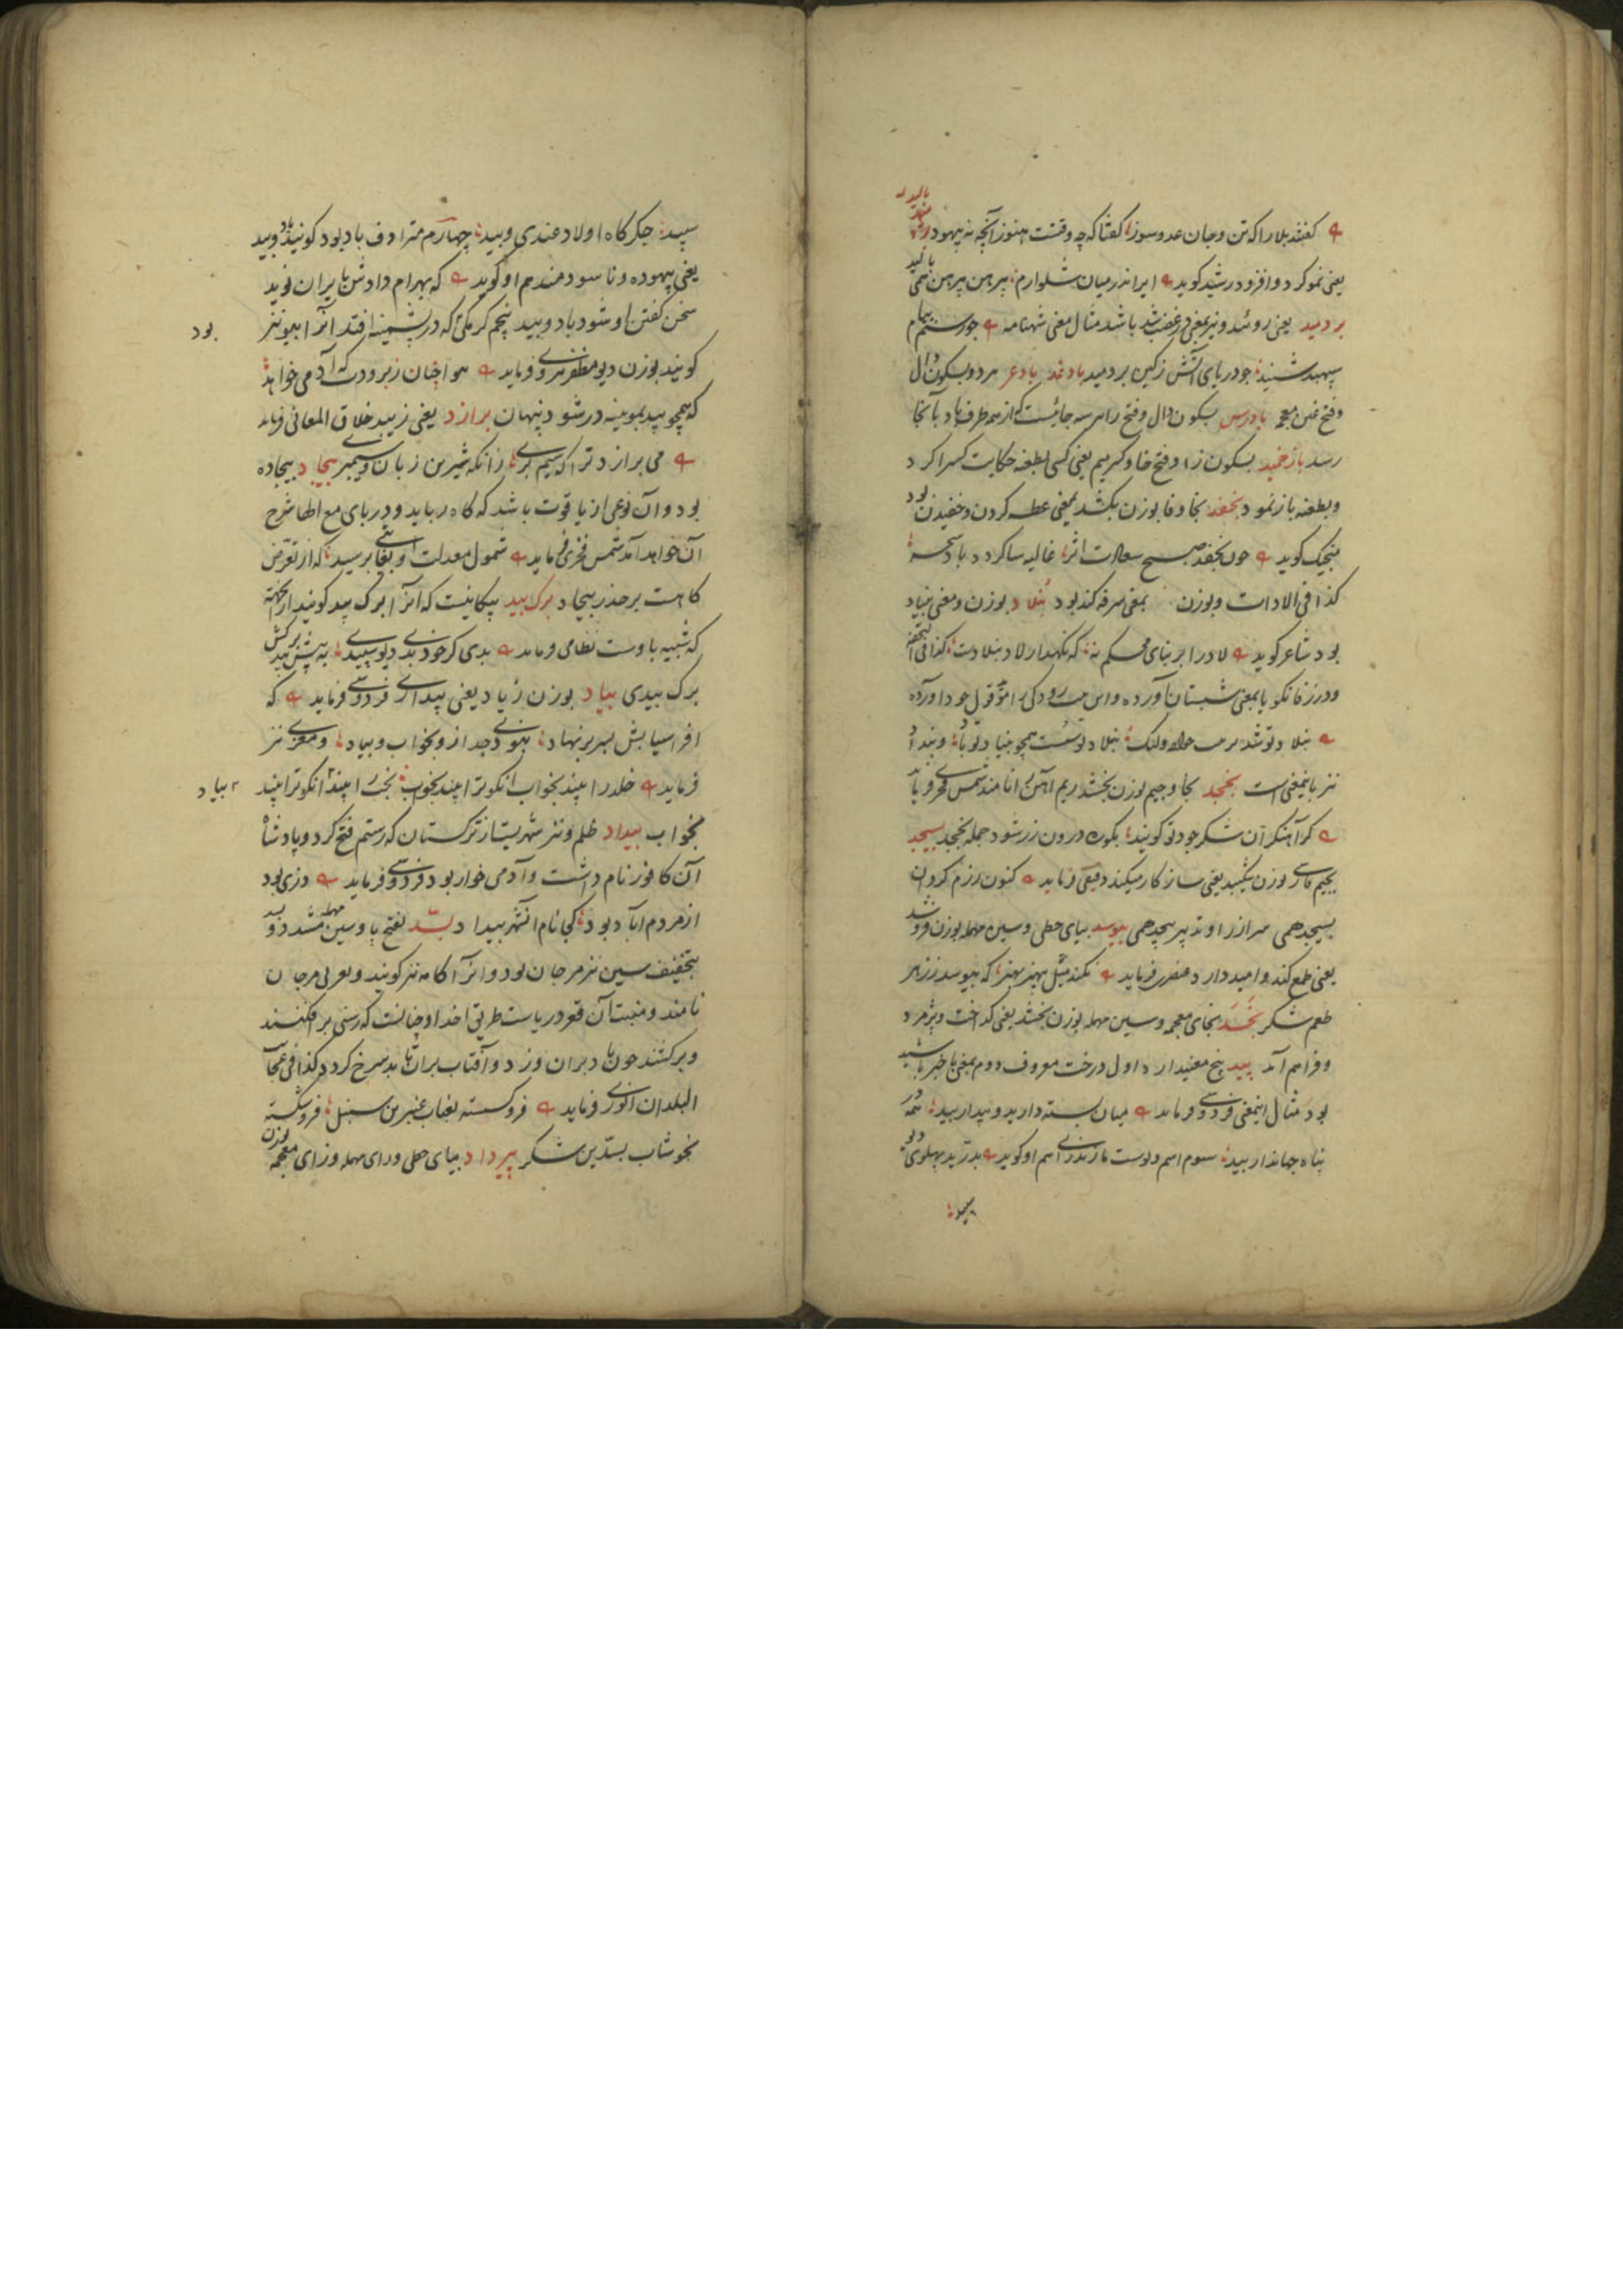 بالیدن
کفتند بلا را که تن و جان عدو سوز کفتا که چه وقتست هنوز آنچه نه بیهود
یعنی نمو کرد و افزود رشید کوید ایرا نه در میان شلوارم پیرهن پیرهن همی بالید
بردمید یعنی روئید و نیز بمعنی در غضب شد باشد مثال معنی شهنامه چو رستم پیام
سپهبد شنید چو دریای آتش ز کین بردمید بادغد بادغر هر دو بسکون دال
و فتح غین معجمه بادرس بسکون دال و فتح را هر سه جائیست که از همه طرف باد بآنجا
رسد بازخمید بسکون زا و فتح خا و کسر میم یعنی کسی بطعنه حکایت کسی را کرد
و بطعنه باز نمود بخفد بخا و فا بوزن بکشد بمعنی عطسه کردن و خفیدن بود
منجیک کوید چون بخفد صبح سعادت اثر غالیه سا کردد باد سحر
کذا فی الادات و بوزن بمعنی سرفه کند بود بنلاد بوزن و معنی بنیاد
بود شاعر کوید لاد را بر بنای محکم نه که نکهدار لاد بنلادست کذا فی التحفه
و در زفانکویا بمعنی شبستان آورده و این بیت رودکی را مؤید قول خود آورده
بنلاد تو شد بنلاد تو سست همچو بنیاد تو باد و بنداد
نیز باینمعنی است بخجد بخا و جیم بوزن بخشد ریم آهن را نامند شمس فخری فرماید
کر آهنکر آن شکر جود تو کویند بکوره درون زر شود جمله بخجد بسیجد
بجیم فارسی بوزن نیکبید یعنی ساز کار میکند دقیقی فرماید کنون رزم کردان
بسیجد همی سر از راز و تدبیر پیچد همی بیوسد بیای حطی و سین مهمله بوزن فروشد
یعنی طمع کند و امید دارد عنصری فرماید نکند میل بیهنر بهنر که بیوسد ز زهر
طعم شکر بخسد بخای معجمه و سین مهمله بوزن بخشد یعنی کداخت و پژمرد
و فراهم آمد بید پنج معنی دارد اول درخت معروف دوم بمعنی با خبر باشید
بود مثال اینمعنی فردوسی فرماید میان بسته دارید و بیدار بید همه در
پناه جهاندار بید سوم اسم دیوست مازندرانی هم او کوید بدرید پهلوی دیو
سپید
سپید جکرکاه اولاد غندی و بید چهارم مترادف باد بود کویند باد و بید
یعنی بیهوده و ناسودمند هم او کوید که بهرام دادش بایران نوید
سخن کفتن او شود باد و بید پنجم کرمکی که در پشمینه افتد آنرا بیو نیز
بود
کویند بوزن دیو مظفر هروی فرماید هوا چنان زبرودت که آدمی خواهد
که همچو بید بموینه در شود پنهان برازد یعنی زیبد خلاق المعانی فرماید
می برازد ترا که سیم بری زانکه شیرین زبان و سیمبری بیجاد بیجاده
بود و آن نوعی از یاقوت باشد که کاه رباید و در بای مع الها شرح
آن خواهد آمد شمس فخری فرماید شمول معدلت او بغایتی برسید که از تعرض
کاهست بر حذر بیجاد برک بید پیکانیست که آنرا برک بید کویند از بهر آنکه
که شبیه باوست نظامی فرماید بدی کر خود بدی دیو سپیدی به پیش بید برکش
برک بیدی بیاد بوزن زیاد یعنی بیداری فردوسی فرماید که
افراسیابش بسر بر نهاد نبودی جدا زو بخواب و بیاد و معزی نیز
فرماید خلد را بیند بخواب آنکو ترا بیند بخواب بخت را بیند آنکو ترا بیند
بیاد
بخواب بیداد ظلم و نیز شهریست از ترکستان که رستم فتح کرد و پادشاه
آن کافور نام داشت و آدمی خوار بود فردوسی فرماید دزی بود
از مردم آباد بود کجا نام آنشهر بیداد بود بسد بفتح با و سین مهمله مشدد و
بتخفیف سین نیز مرجان بود و آنرا کامه نیز کویند و بعربی مرجان
نامند و منبت آن قعر دریاست طریق اخذ او چنانست که رسنی برافکنند
و برکشند چون باد بران وزد و آفتاب بران تابد سرخ کردد کذا فی عجائب
البلدان انوری فرماید فرو کسسته بعناب عنبرین سنبل فرو شکسته
بخوشاب بسدین شکر بیرداد بیای حطی و رای مهمله و زای معجمه بوزن